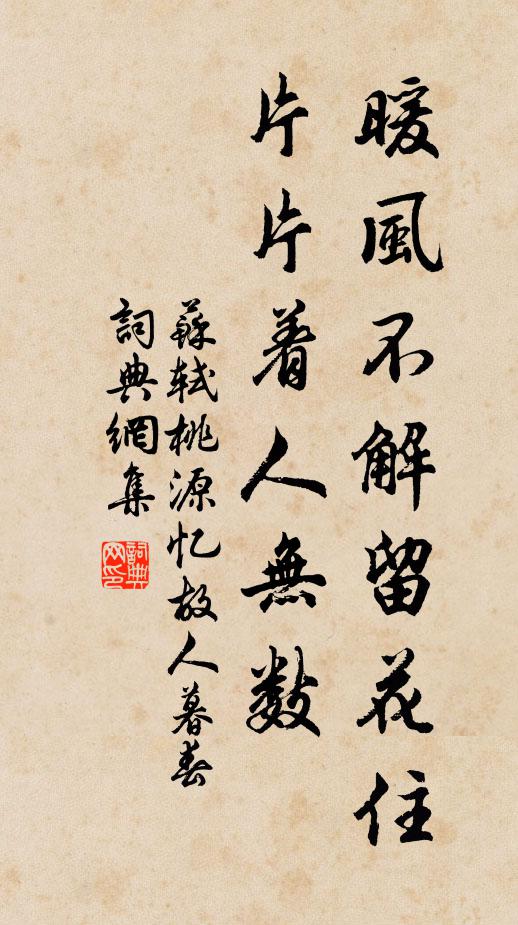 暖風不解留花住
片片着人無数
蘇軾桃源忆故人暮春
詞典網集
詞典网印